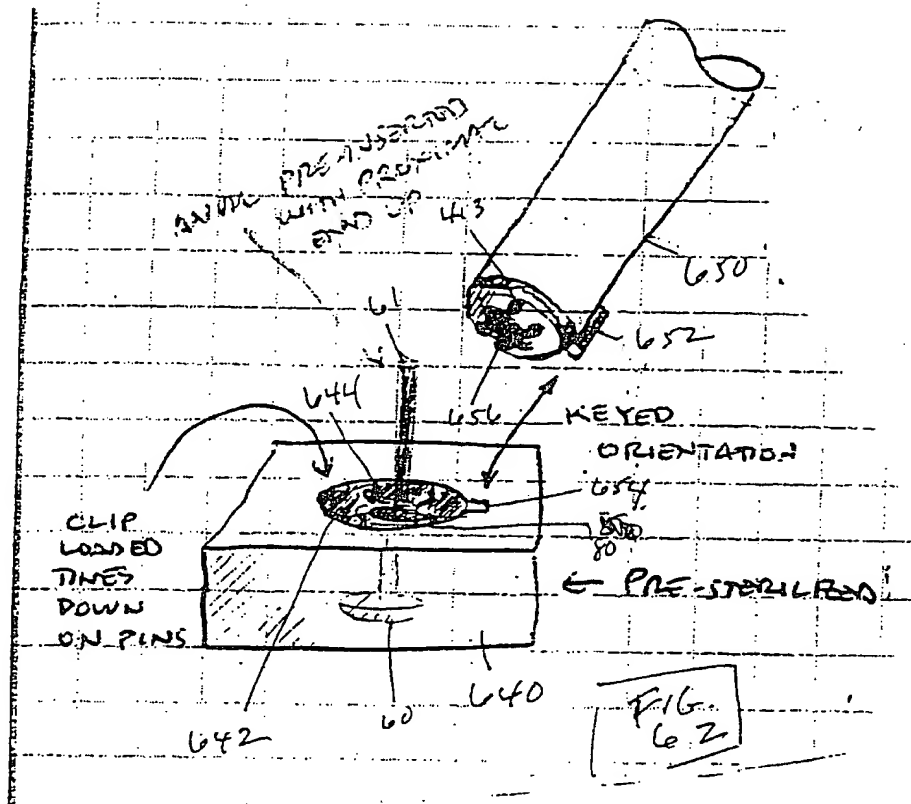 PRE-INSERTED
WITH PROXIMAL
END UP
413
650
61
652
644
656
KEYED
ORIENTATION
654
CLIP
LOADED
TINES
DOWN
ON PINS
80
← PRE-STERILIZED
642
60
640
FIG.
62